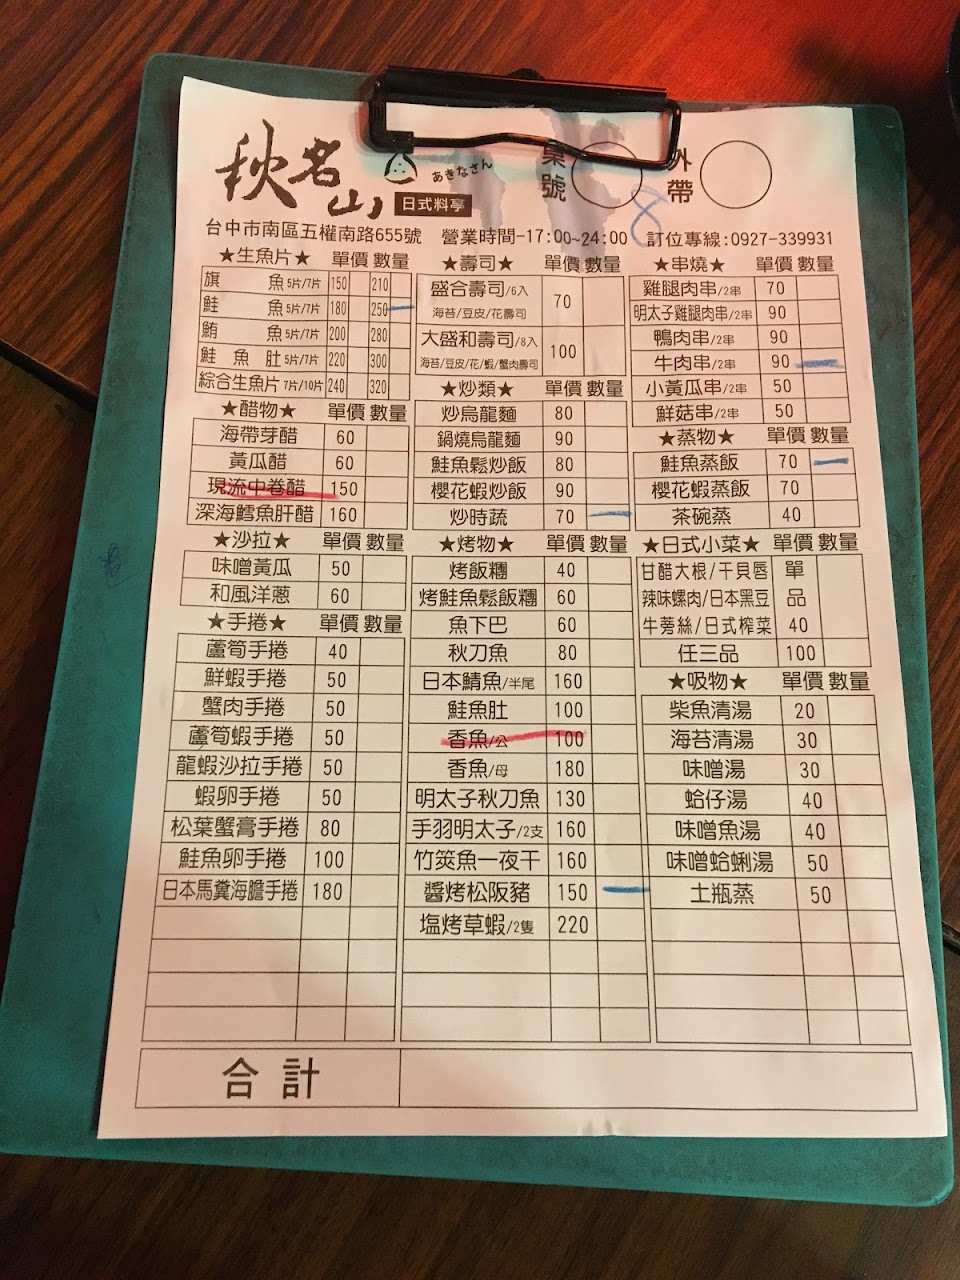 秋名山
あきなさん
日式料亭
桌號
8
外帶
台中市南區五權南路655號 營業時間-17:00~24:00 訂位專線:0927-339931
★生魚片★ 單價 數量
旗魚 5片/7片 150 210
鮭魚 5片/7片 180 250
鮪魚 5片/7片 200 280
鮭魚肚 5片/7片 220 300
綜合生魚片 7片/10片 240 320
★醋物★ 單價 數量
海帶芽醋 60
黃瓜醋 60
現流中卷醋 150
深海鱈魚肝醋 160
★沙拉★ 單價 數量
味噌黃瓜 50
和風洋蔥 60
★手捲★ 單價 數量
蘆筍手捲 40
鮮蝦手捲 50
蟹肉手捲 50
蘆筍蝦手捲 50
龍蝦沙拉手捲 50
蝦卵手捲 50
松葉蟹膏手捲 80
鮭魚卵手捲 100
日本馬糞海膽手捲 180
★壽司★ 單價 數量
盛合壽司/6入 70
海苔/豆皮/花壽司
大盛和壽司/8入 100
海苔/豆皮/花/蝦/蟹肉壽司
★炒類★ 單價 數量
炒烏龍麵 80
鍋燒烏龍麵 90
鮭魚鬆炒飯 80
櫻花蝦炒飯 90
炒時蔬 70
★烤物★ 單價 數量
烤飯糰 40
烤鮭魚鬆飯糰 60
魚下巴 60
秋刀魚 80
日本鯖魚/半尾 160
鮭魚肚 100
香魚/公 100
香魚/母 180
明太子秋刀魚 130
手羽明太子/2支 160
竹筴魚一夜干 160
醬烤松阪豬 150
塩烤草蝦/2隻 220
★串燒★ 單價 數量
雞腿肉串/2串 70
明太子雞腿肉串/2串 90
鴨肉串/2串 90
牛肉串/2串 90
小黃瓜串/2串 50
鮮菇串/2串 50
★蒸物★ 單價 數量
鮭魚蒸飯 70
櫻花蝦蒸飯 70
茶碗蒸 40
★日式小菜★ 單價 數量
甘醋大根/干貝唇 單
辣味螺肉/日本黑豆 品
牛蒡絲/日式榨菜 40
任三品 100
★吸物★ 單價 數量
柴魚清湯 20
海苔清湯 30
味噌湯 30
蛤仔湯 40
味噌魚湯 40
味噌蛤蜊湯 50
土瓶蒸 50
合計